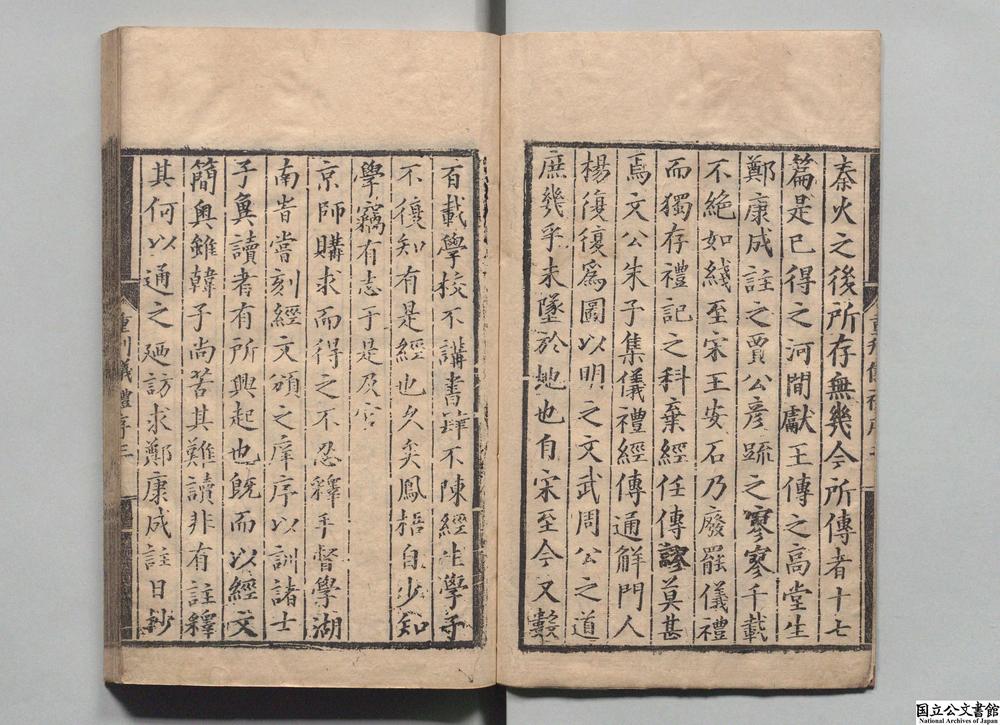 秦火之後所存無幾今所傳者十七
篇是已得之河間獻王傳之高堂生
鄭康成註之賈公彥䟽之寥寥千載
不絶如綫至宋王安石乃廢罷儀禮
而獨存禮記之科棄經任傳謬莫甚
焉文公朱子集儀禮經傳通解門人
楊復復爲圖以明之文武周公之道
庶幾乎未墜於地也自宋至今又數
百載學校不講書肆不陳經生學子
不復知有是經也久矣鳳梧自少知
學竊有志于是及官
京師購求而得之不忍釋手督學湖
南省嘗刻經文頒之庠序以訓諸士
子兾讀者有所興起也旣而以經文
簡奧雖韓子尚苦其難讀非有註釋
其何以通之廼訪求鄭康成註日抄
重刊儀禮序三
国立公文書館
National Archives of Japan